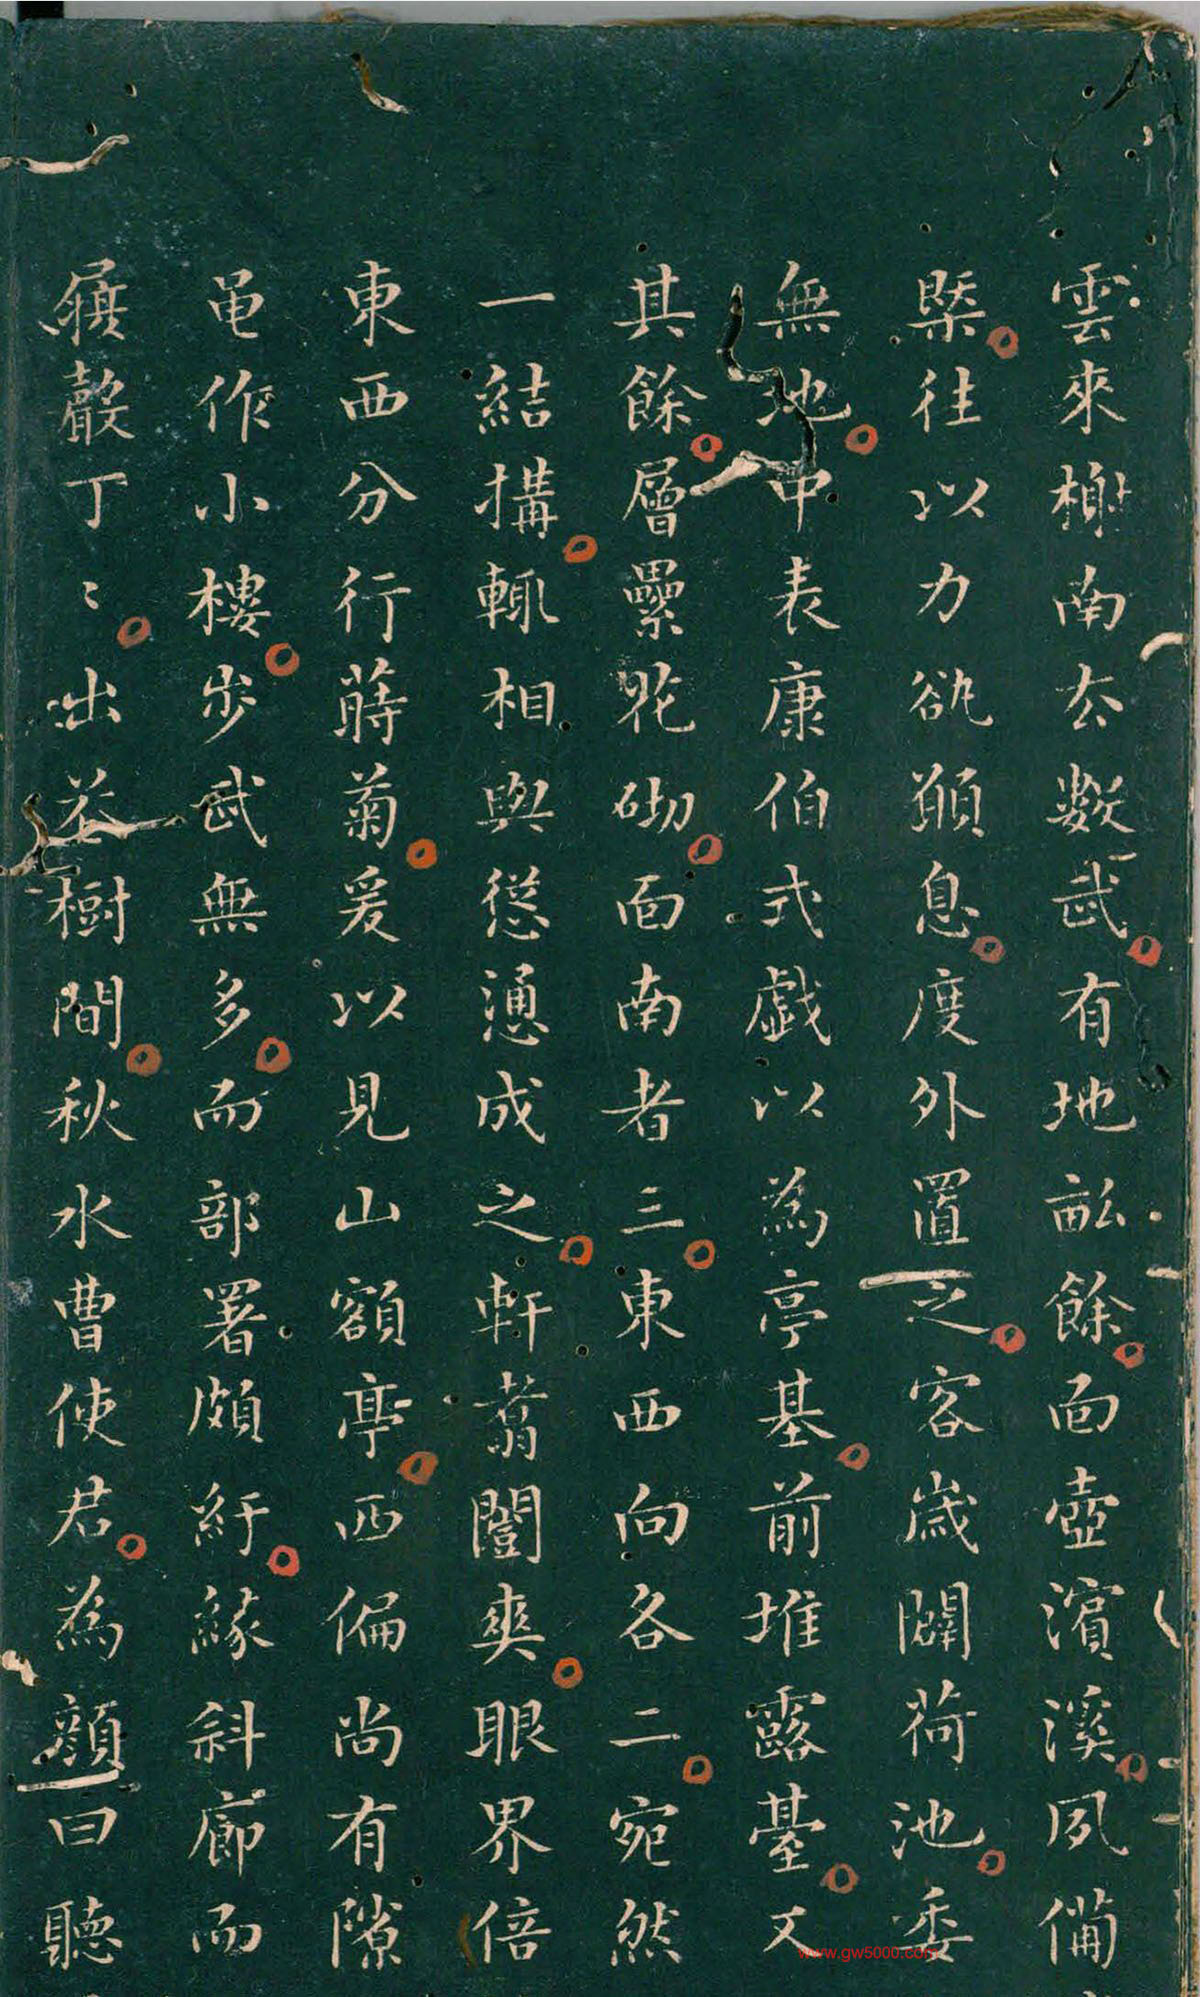 雲來榭南去數武有地畝餘面壺濱溪夙備
槩往以力欲顧息度外置之客歲闢荷池委
無地中表康伯式戲以為亭基前堆露臺又
其餘層纍花砌面南者三東西向各二宛然
一結搆輒相與慫慂成之軒翥闓爽眼界倍
東西分行蒔菊爰以見山額亭西偏尚有隙
作小樓步武無多而部署頗紆緣斜廊而
屐聲丁〻出花樹間秋水曹使君為顏曰聽
www.gw5000.com